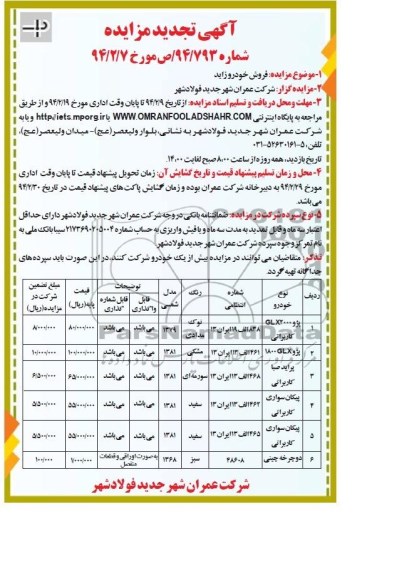 آگهی تجدید مزایده
شماره ۹۴/۷۹۳/ص مورخ ۹۴/۲/۷
۱-موضوع مزایده: فروش خودرو زاید
۲-مزایده گزار: شرکت عمران شهر جدید فولادشهر
۳-مهلت ومحل دریافت و تسلیم اسناد مزایده: از تاریخ ۹۴/۲/۹ تا پایان وقت اداری مورخ ۹۴/۲/۱۹ و از طریق
مراجعه به پایگاه اینترنتی WWW.OMRANFOOLADSHAHR.COM یا http//iets.mporg.ir و یا به
شرکت عمران شهر جدید فولادشهر به نشانی، بلوار ولیعصر(عج)- میدان ولیعصر(عج)،
تلفن: ۵-۰۳۱-۵۲۶۳۰۱۶۱
تاریخ بازدید، همه روزه از ساعت ۸:۰۰ صبح لغایت ۱۴:۰۰.
۴- محل و زمان تسلیم پیشنهاد قیمت و تاریخ گشایش آن: زمان تحویل پیشنهاد قیمت تا پایان وقت اداری
مورخ ۹۴/۲/۲۹ به دبیرخانه شرکت عمران بوده و زمان گشایش پاکت های پیشنهاد قیمت در تاریخ ۹۴/۲/۳۰
می باشد.
۵- نوع سپرده شرکت در مزایده: ضمانتنامه بانکی در وجه شرکت عمران شهر جدید فولادشهر دارای حداقل
اعتبار سه ماه و قابل تمدید به مدت سه ماه و یا فیش واریزی به حساب شماره ۲۱۷۳۶۹۰۲۰۵۰۰۲ سیبا بانک ملی به
نام تمرکز وجوه سپرده شرکت عمران شهر جدید فولادشهر
تذکر: متقاضیان می توانند در مزایده بیش از یک خودرو شرکت کنند، در این صورت باید سپرده های
جداگانه تهیه گردد.
ردیف نوع خودرو شماره انتظامی رنگ مدل شمسی توضیحات قابل واگذاری قابل شماره گذاری قیمت پایه(ریال) مبلغ تضمین شرکت در مزایده(ریال)
۱ پژو GLX۲۰۰۰ کاربراتی ۸۳۸الف۱۹ایران۱۳ نوک مدادی ۱۳۷۹ می باشد می باشد ۸۰/۰۰۰/۰۰۰ ۸/۰۰۰/۰۰۰
۲ پژو GLX ۱۸۰۰ ۴۶۱الف۱۳ایران۱۳ مشکی ۱۳۸۱ می باشد می باشد ۱۰۰/۰۰۰/۰۰۰ ۱۰/۰۰۰/۰۰۰
۳ پراید صبا کاربراتی ۴۶۸الف۱۳ایران۱۳ سورمه ای ۱۳۸۱ می باشد می باشد ۶۵/۰۰۰/۰۰۰ ۶/۵۰۰/۰۰۰
۴ پیکان سواری کاربراتی ۴۶۲الف۱۳ایران۱۳ سفید ۱۳۸۱ می باشد می باشد ۵۵/۰۰۰/۰۰۰ ۵/۵۰۰/۰۰۰
۵ پیکان سواری کاربراتی ۴۶۵الف۱۳ایران۱۳ سفید ۱۳۸۱ می باشد می باشد ۵۵/۰۰۰/۰۰۰ ۵/۵۰۰/۰۰۰
۶ دوچرخه چینی ۴۸۶۰۸ سبز ۱۳۶۸ به صورت اوراقی و قطعات منفصل ۱/۰۰۰/۰۰۰ ۱۰۰/۰۰۰
شرکت عمران شهر جدید فولادشهر